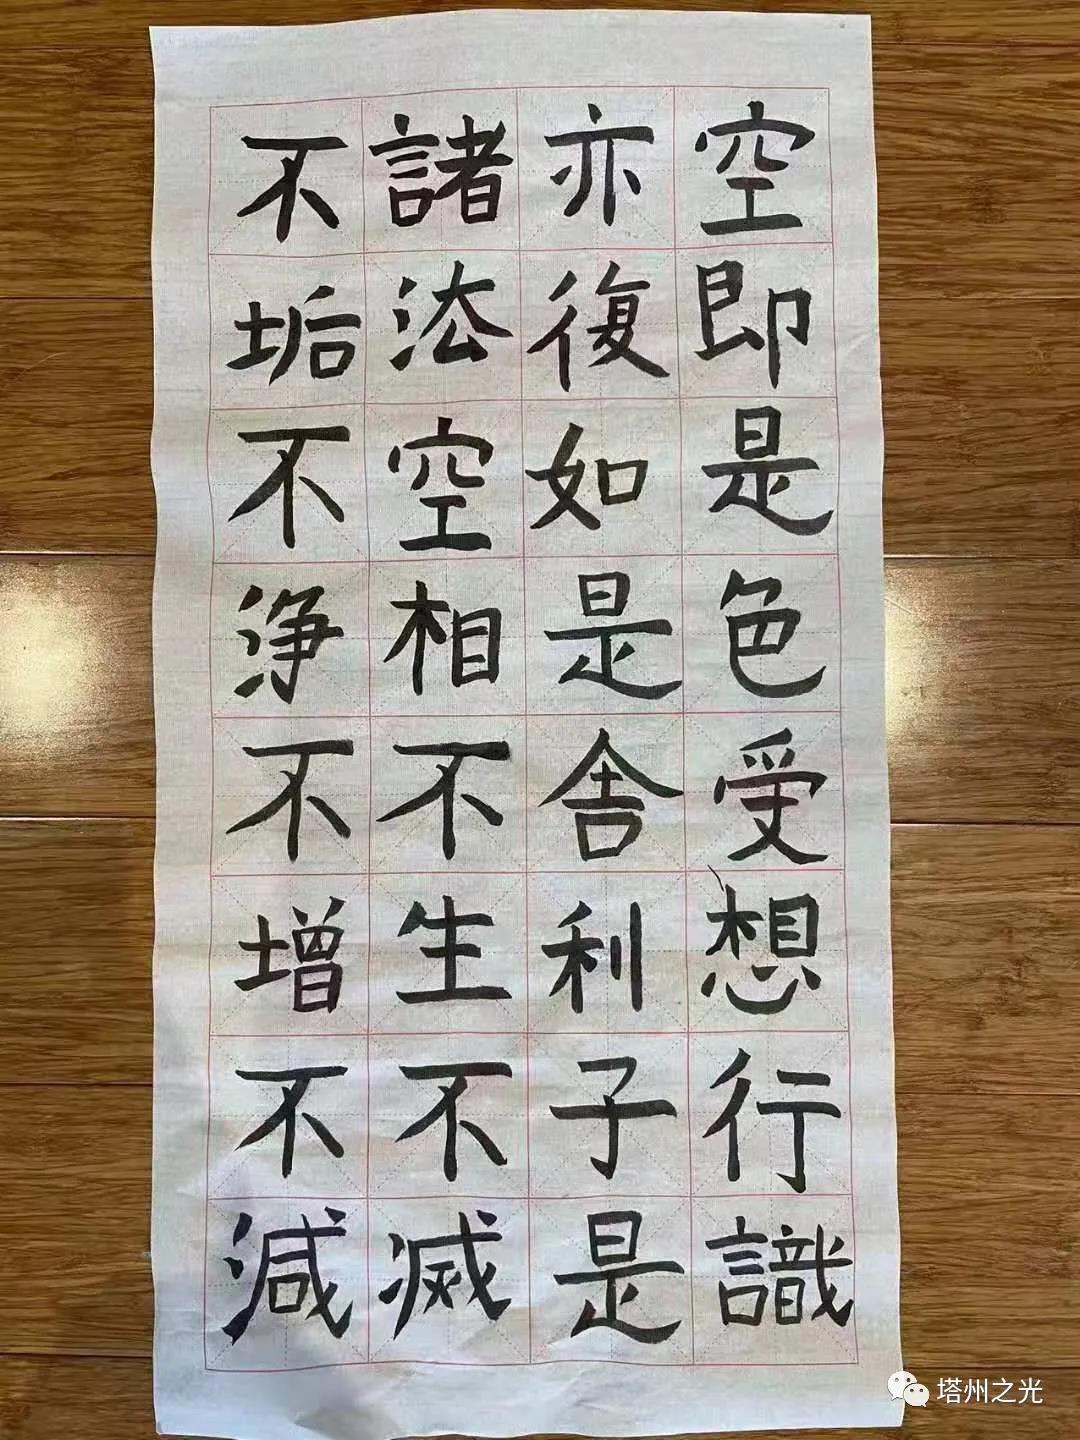 空即是色受想行識
亦復如是舍利子是
諸法空相不生不滅
不垢不淨不增不減
塔州之光